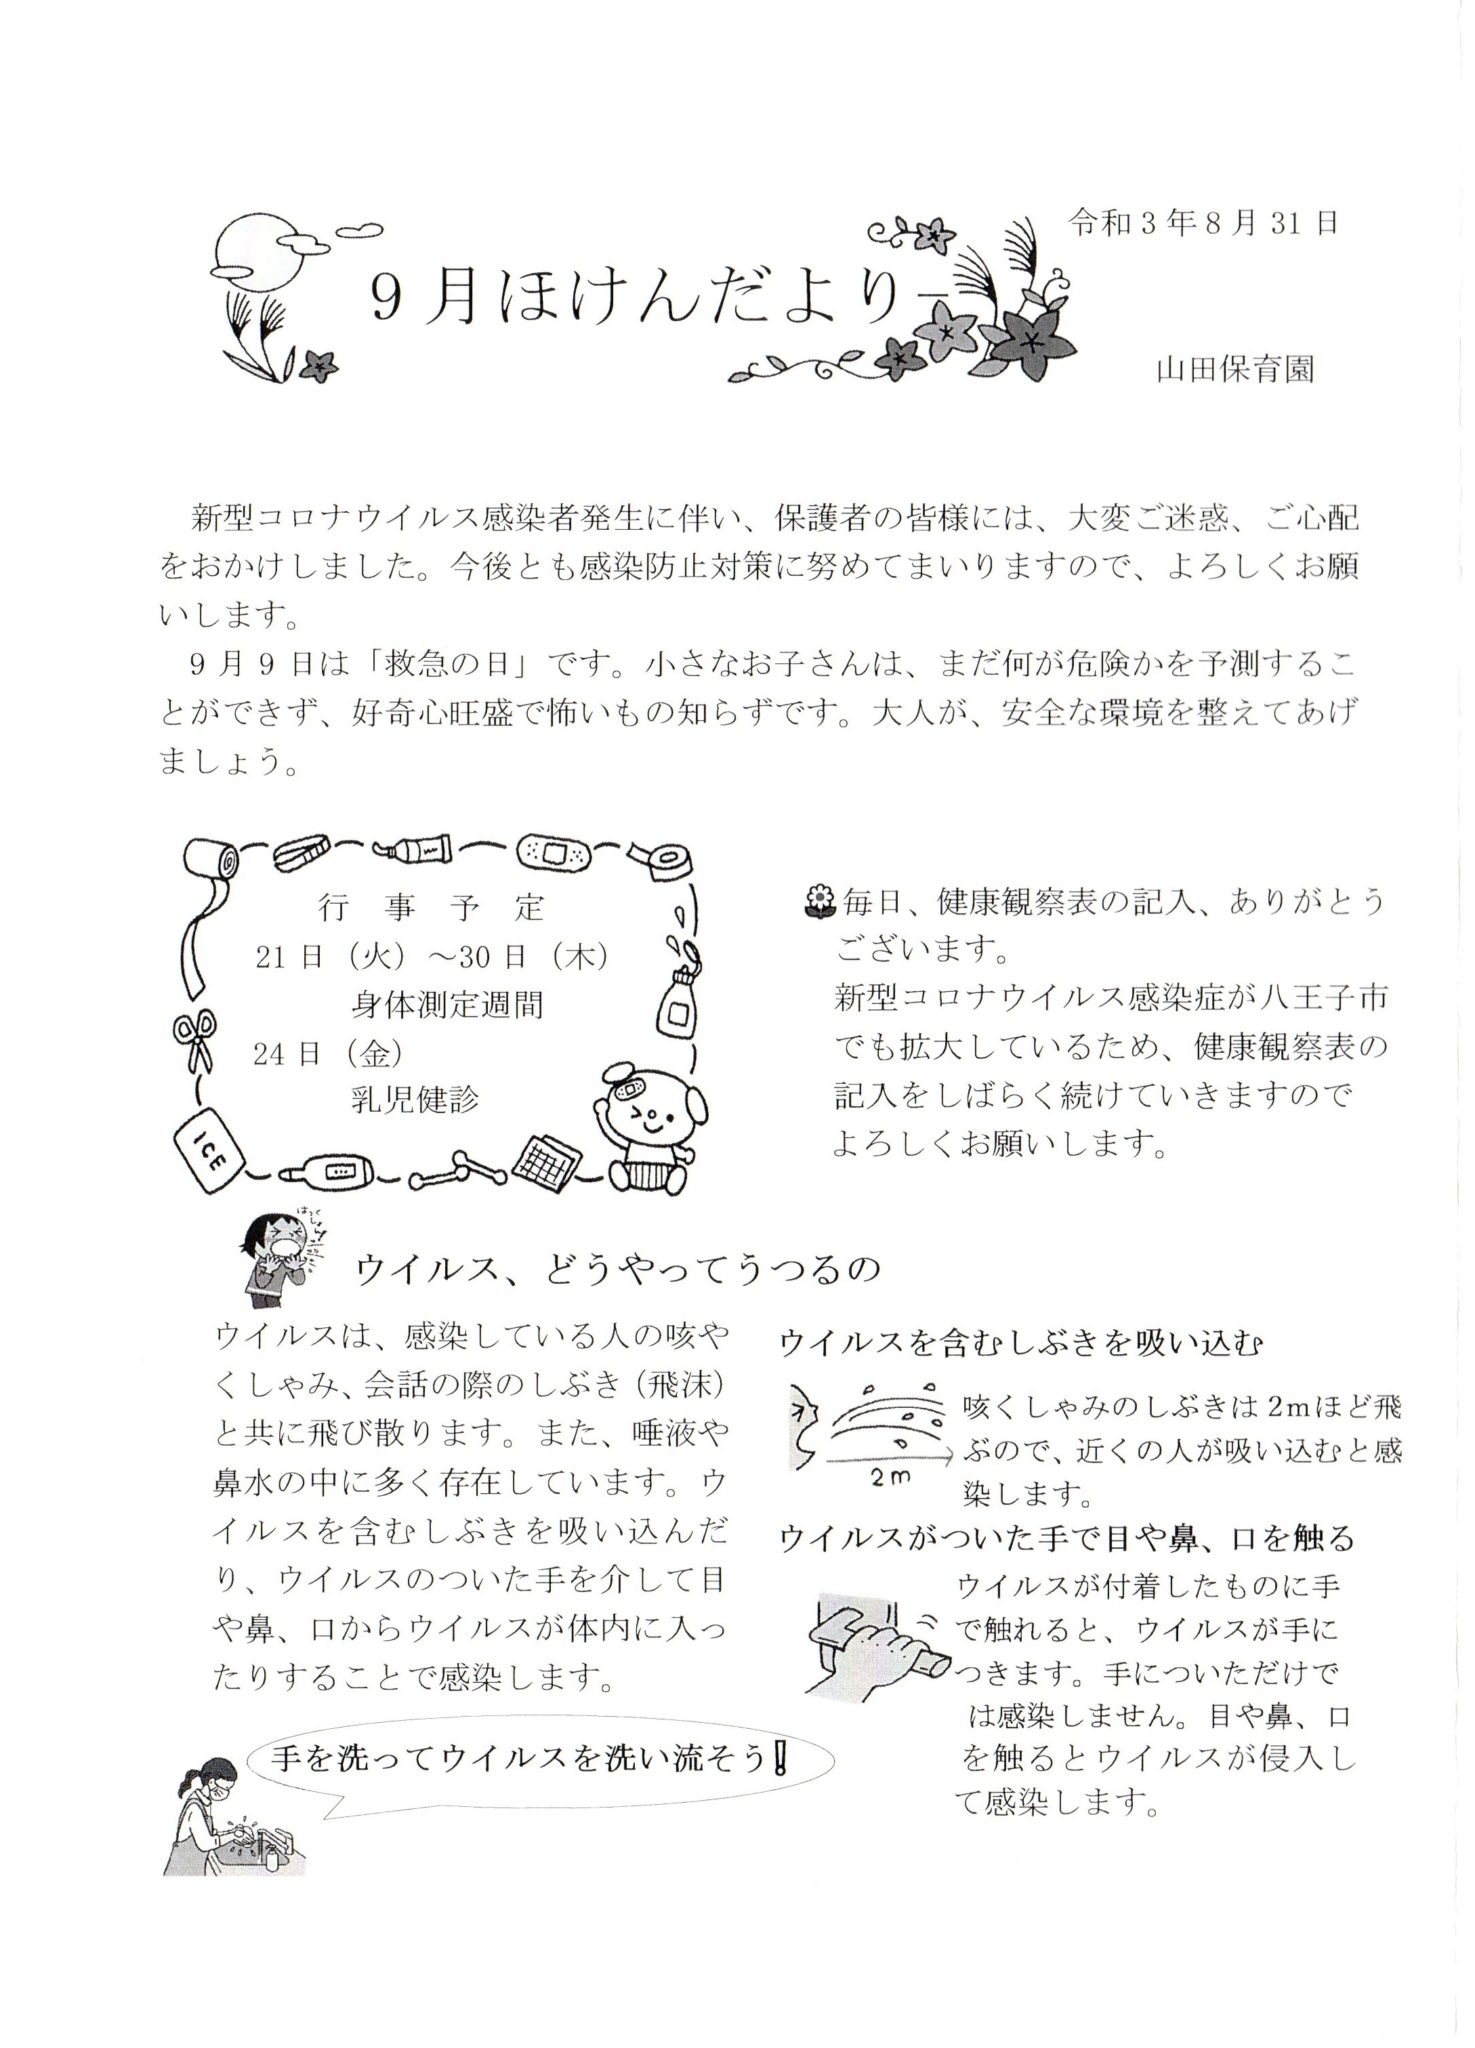 令和3年8月31日
9月ほけんだより
山田保育園
新型コロナウイルス感染者発生に伴い、保護者の皆様には、大変ご迷惑、ご心配
をおかけしました。今後とも感染防止対策に努めてまいりますので、よろしくお願
いします。
9月9日は「救急の日」です。小さなお子さんは、まだ何が危険かを予測するこ
とができず、好奇心旺盛で怖いもの知らずです。大人が、安全な環境を整えてあげ
ましょう。
行事予定
21日（火）～30日（木）
身体測定週間
24日（金）
乳児健診
ICE
毎日、健康観察表の記入、ありがとう
ございます。
新型コロナウイルス感染症が八王子市
でも拡大しているため、健康観察表の
記入をしばらく続けていきますので
よろしくお願いします。
ウイルス、どうやってうつるの
ウイルスは、感染している人の咳や
くしゃみ、会話の際のしぶき（飛沫）
と共に飛び散ります。また、唾液や
鼻水の中に多く存在しています。ウ
イルスを含むしぶきを吸い込んだ
り、ウイルスのついた手を介して目
や鼻、口からウイルスが体内に入っ
たりすることで感染します。
ウイルスを含むしぶきを吸い込む
咳くしゃみのしぶきは2mほど飛
ぶので、近くの人が吸い込むと感
染します。
2m
ウイルスがついた手で目や鼻、口を触る
ウイルスが付着したものに手
で触れると、ウイルスが手に
つきます。手についただけで
は感染しません。目や鼻、口
を触るとウイルスが侵入し
て感染します。
手を洗ってウイルスを洗い流そう！